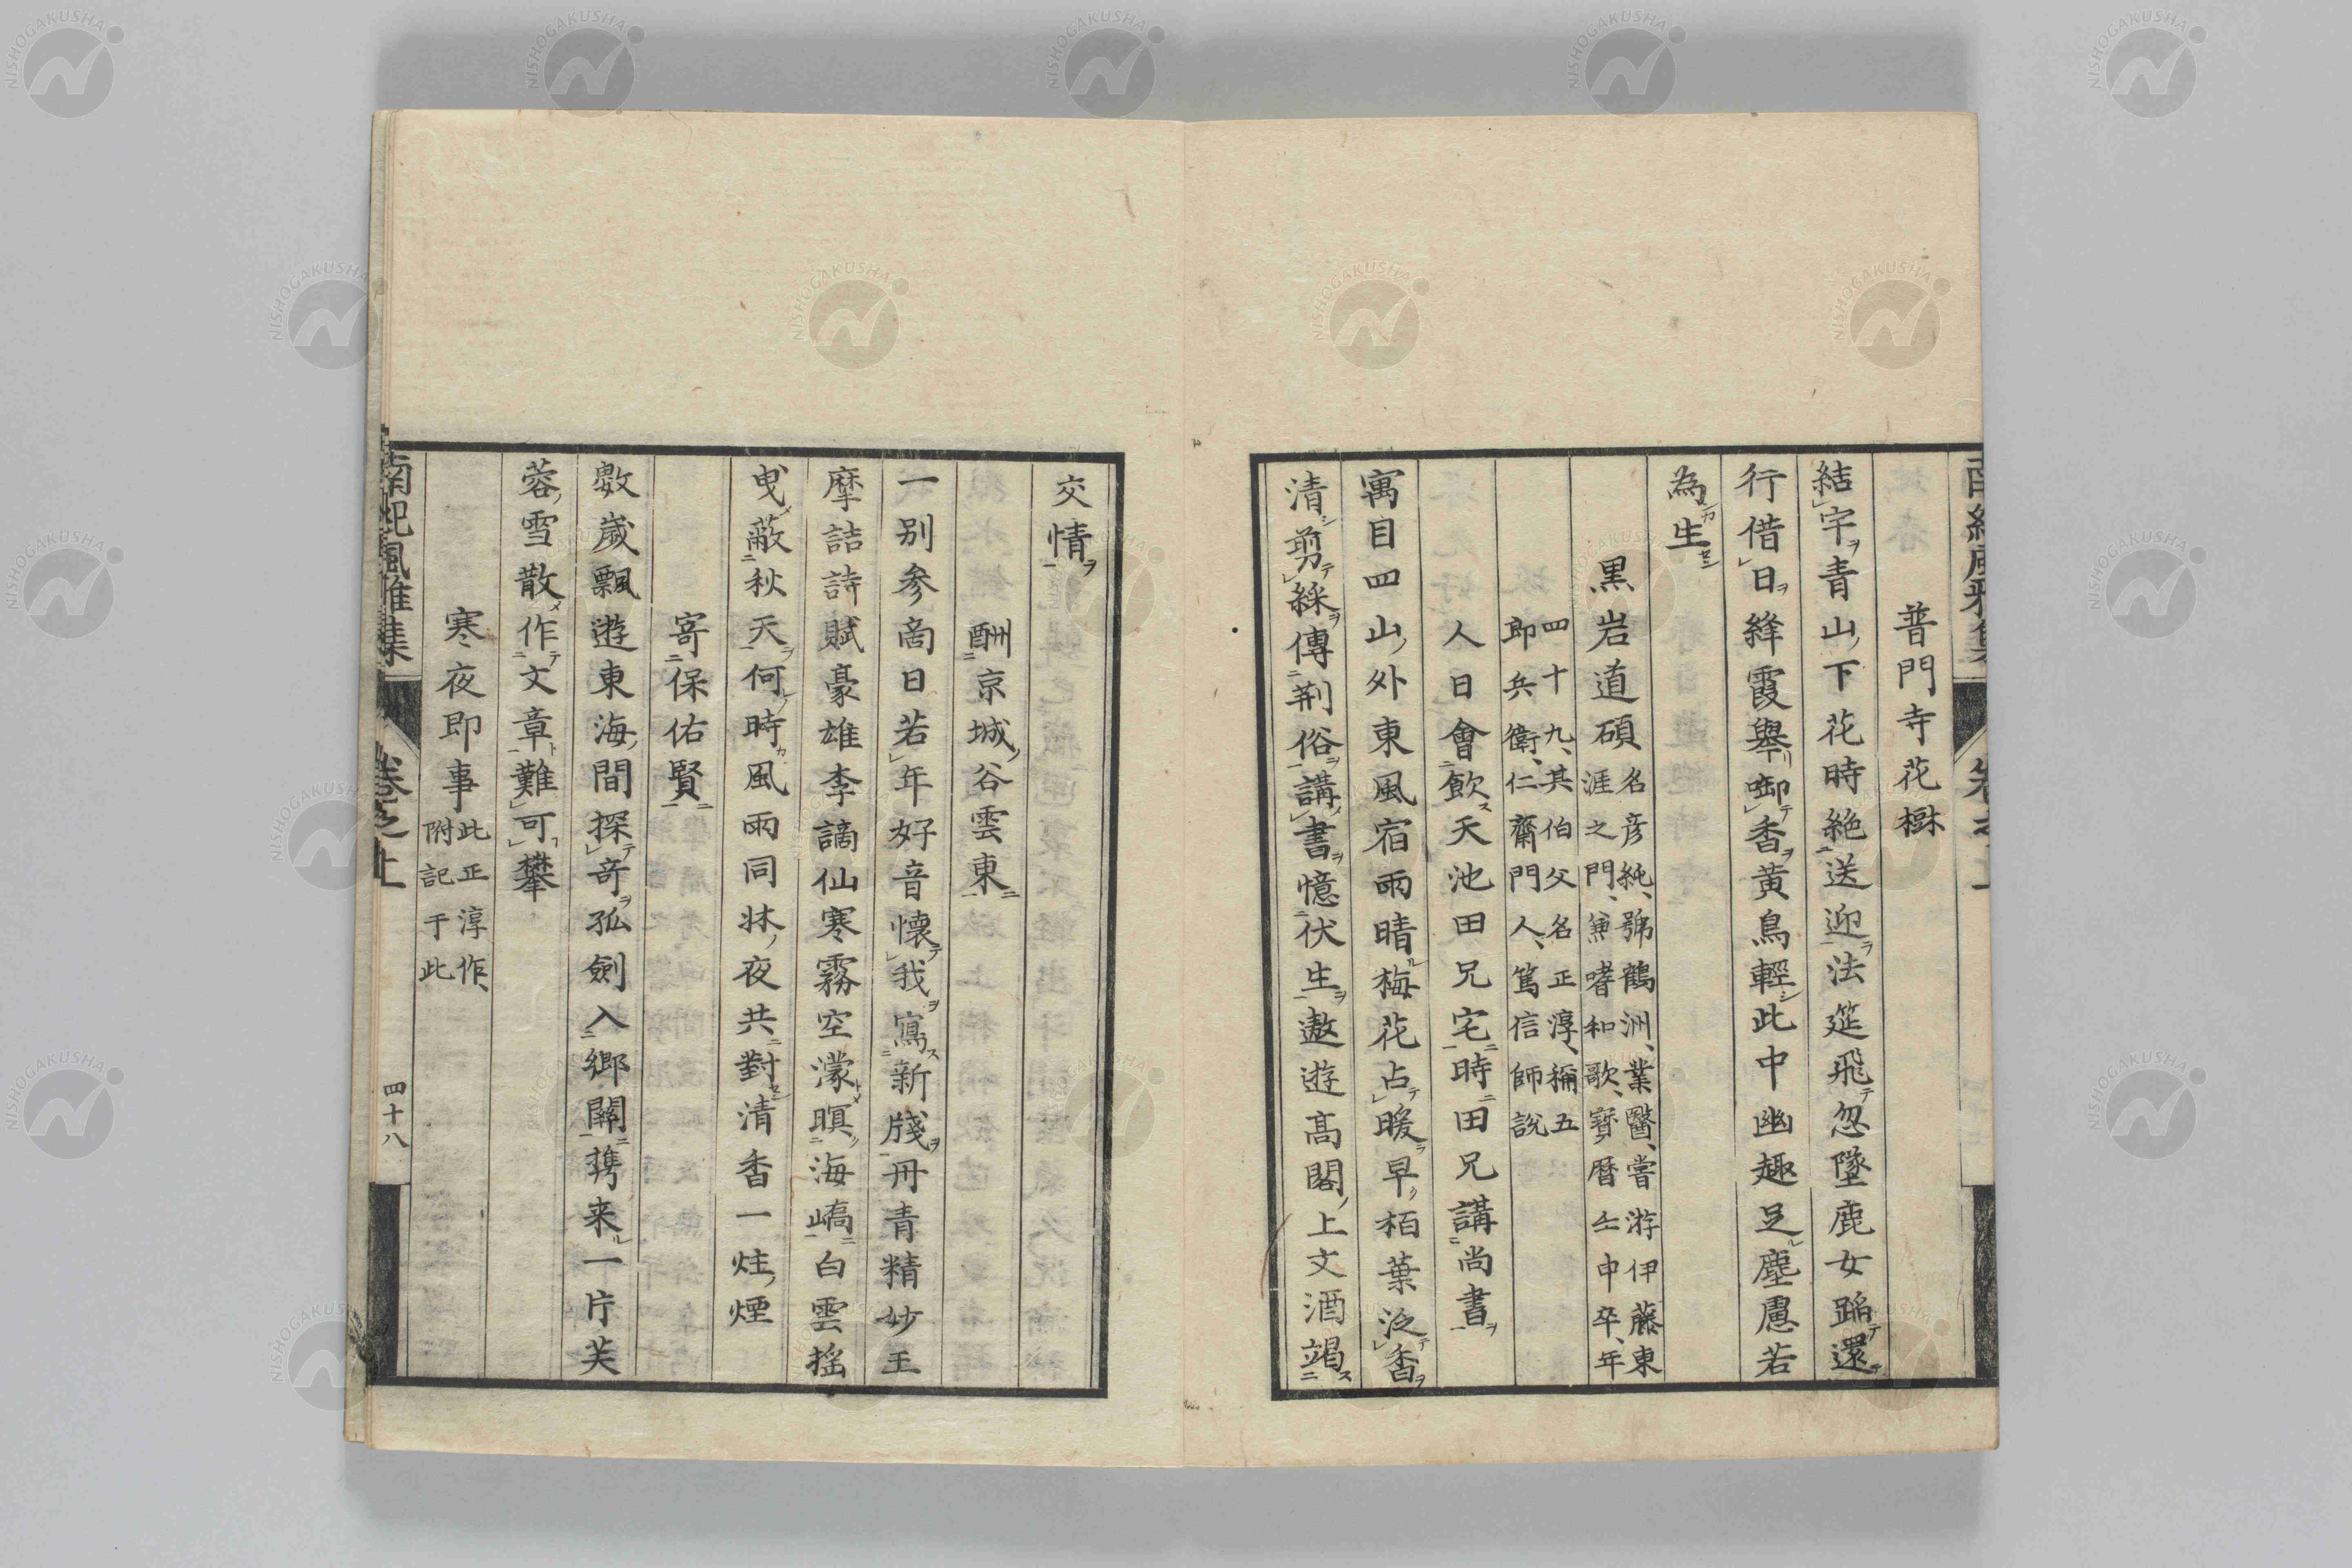 普門寺花樹
結宇青山下花時絶送迎法筵飛忽墜鹿女蹈還
行借日絳霞擧啣香黄鳥輕此中幽趣足塵慮若
為生
黒岩道碩 名彦純、號鶴洲、業醫、嘗游伊藤東
涯之門、兼嗜和歌、寳暦壬申卒、年
四十九、其伯父名正淳、稱五
郎兵衛、仁齋門人、篤信師説
人日會飲天池田兄宅時田兄講尚書
寓目四山外東風宿雨晴梅花占暖早栢葉泛香
清剪綵傳荆俗講書憶伏生遨遊高閣上文酒竭
交情
酬京城谷雲東
一别参商日若年好音懐我寫新牋丹青精妙王
摩詰詩賦豪雄李謫仙寒霧空濛暝海嶠白雲揺
曳蔽秋天何時風雨同牀夜共對清香一炷煙
寄保佑賢
數歳飄遊東海間探竒孤劍入郷關携来一片芙
蓉雪散作文章難可攀
寒夜即事 此正淳作、
附記于此
南紀風雅集 卷之上 四十八
NISHOGAKUSHA